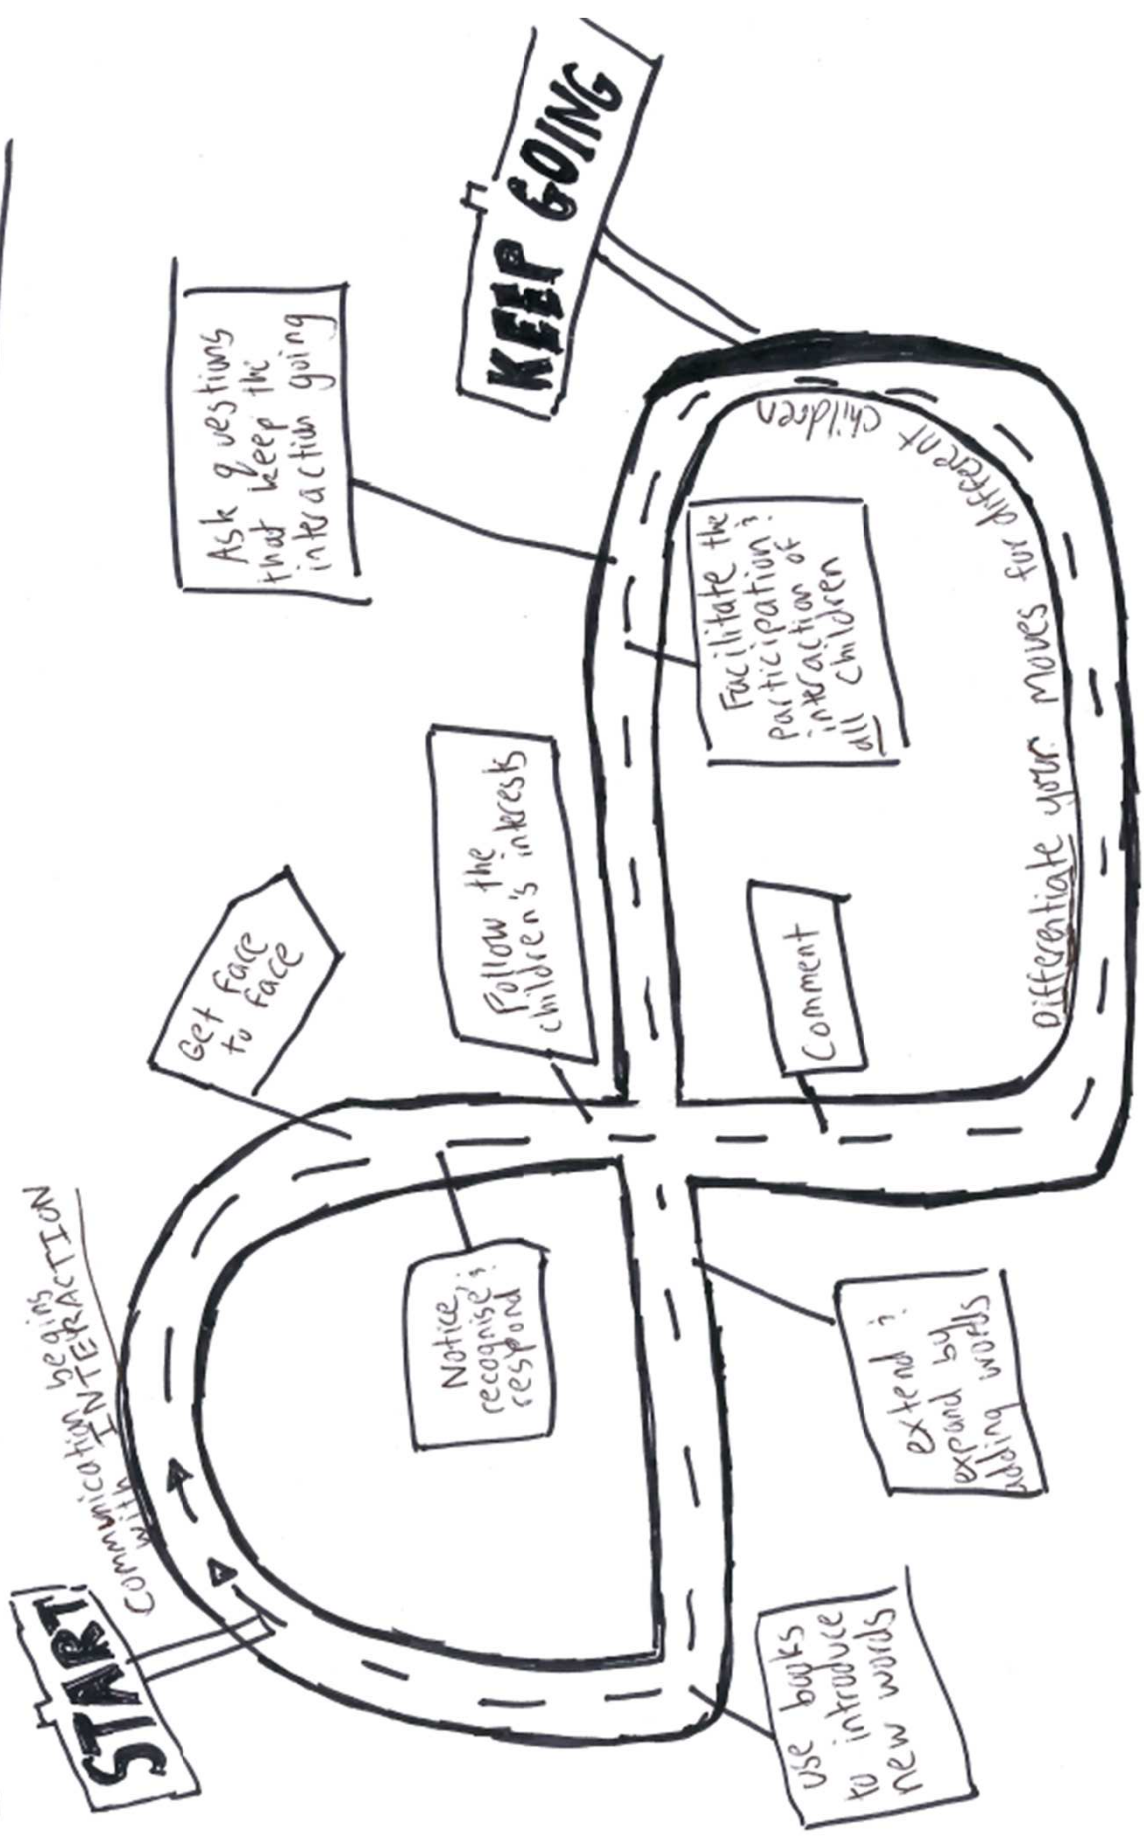 START!
Communication begins
with INTERACTION
Get face
to face
Notice,
recognise, &
respond
Follow the
children's interests
Comment
Ask questions
that keep the
interaction going
KEEP GOING
Facilitate the
participation &
interaction of
all children
Differentiate your moves for different children
extend &
expand by
adding words
Use books
to introduce
new words